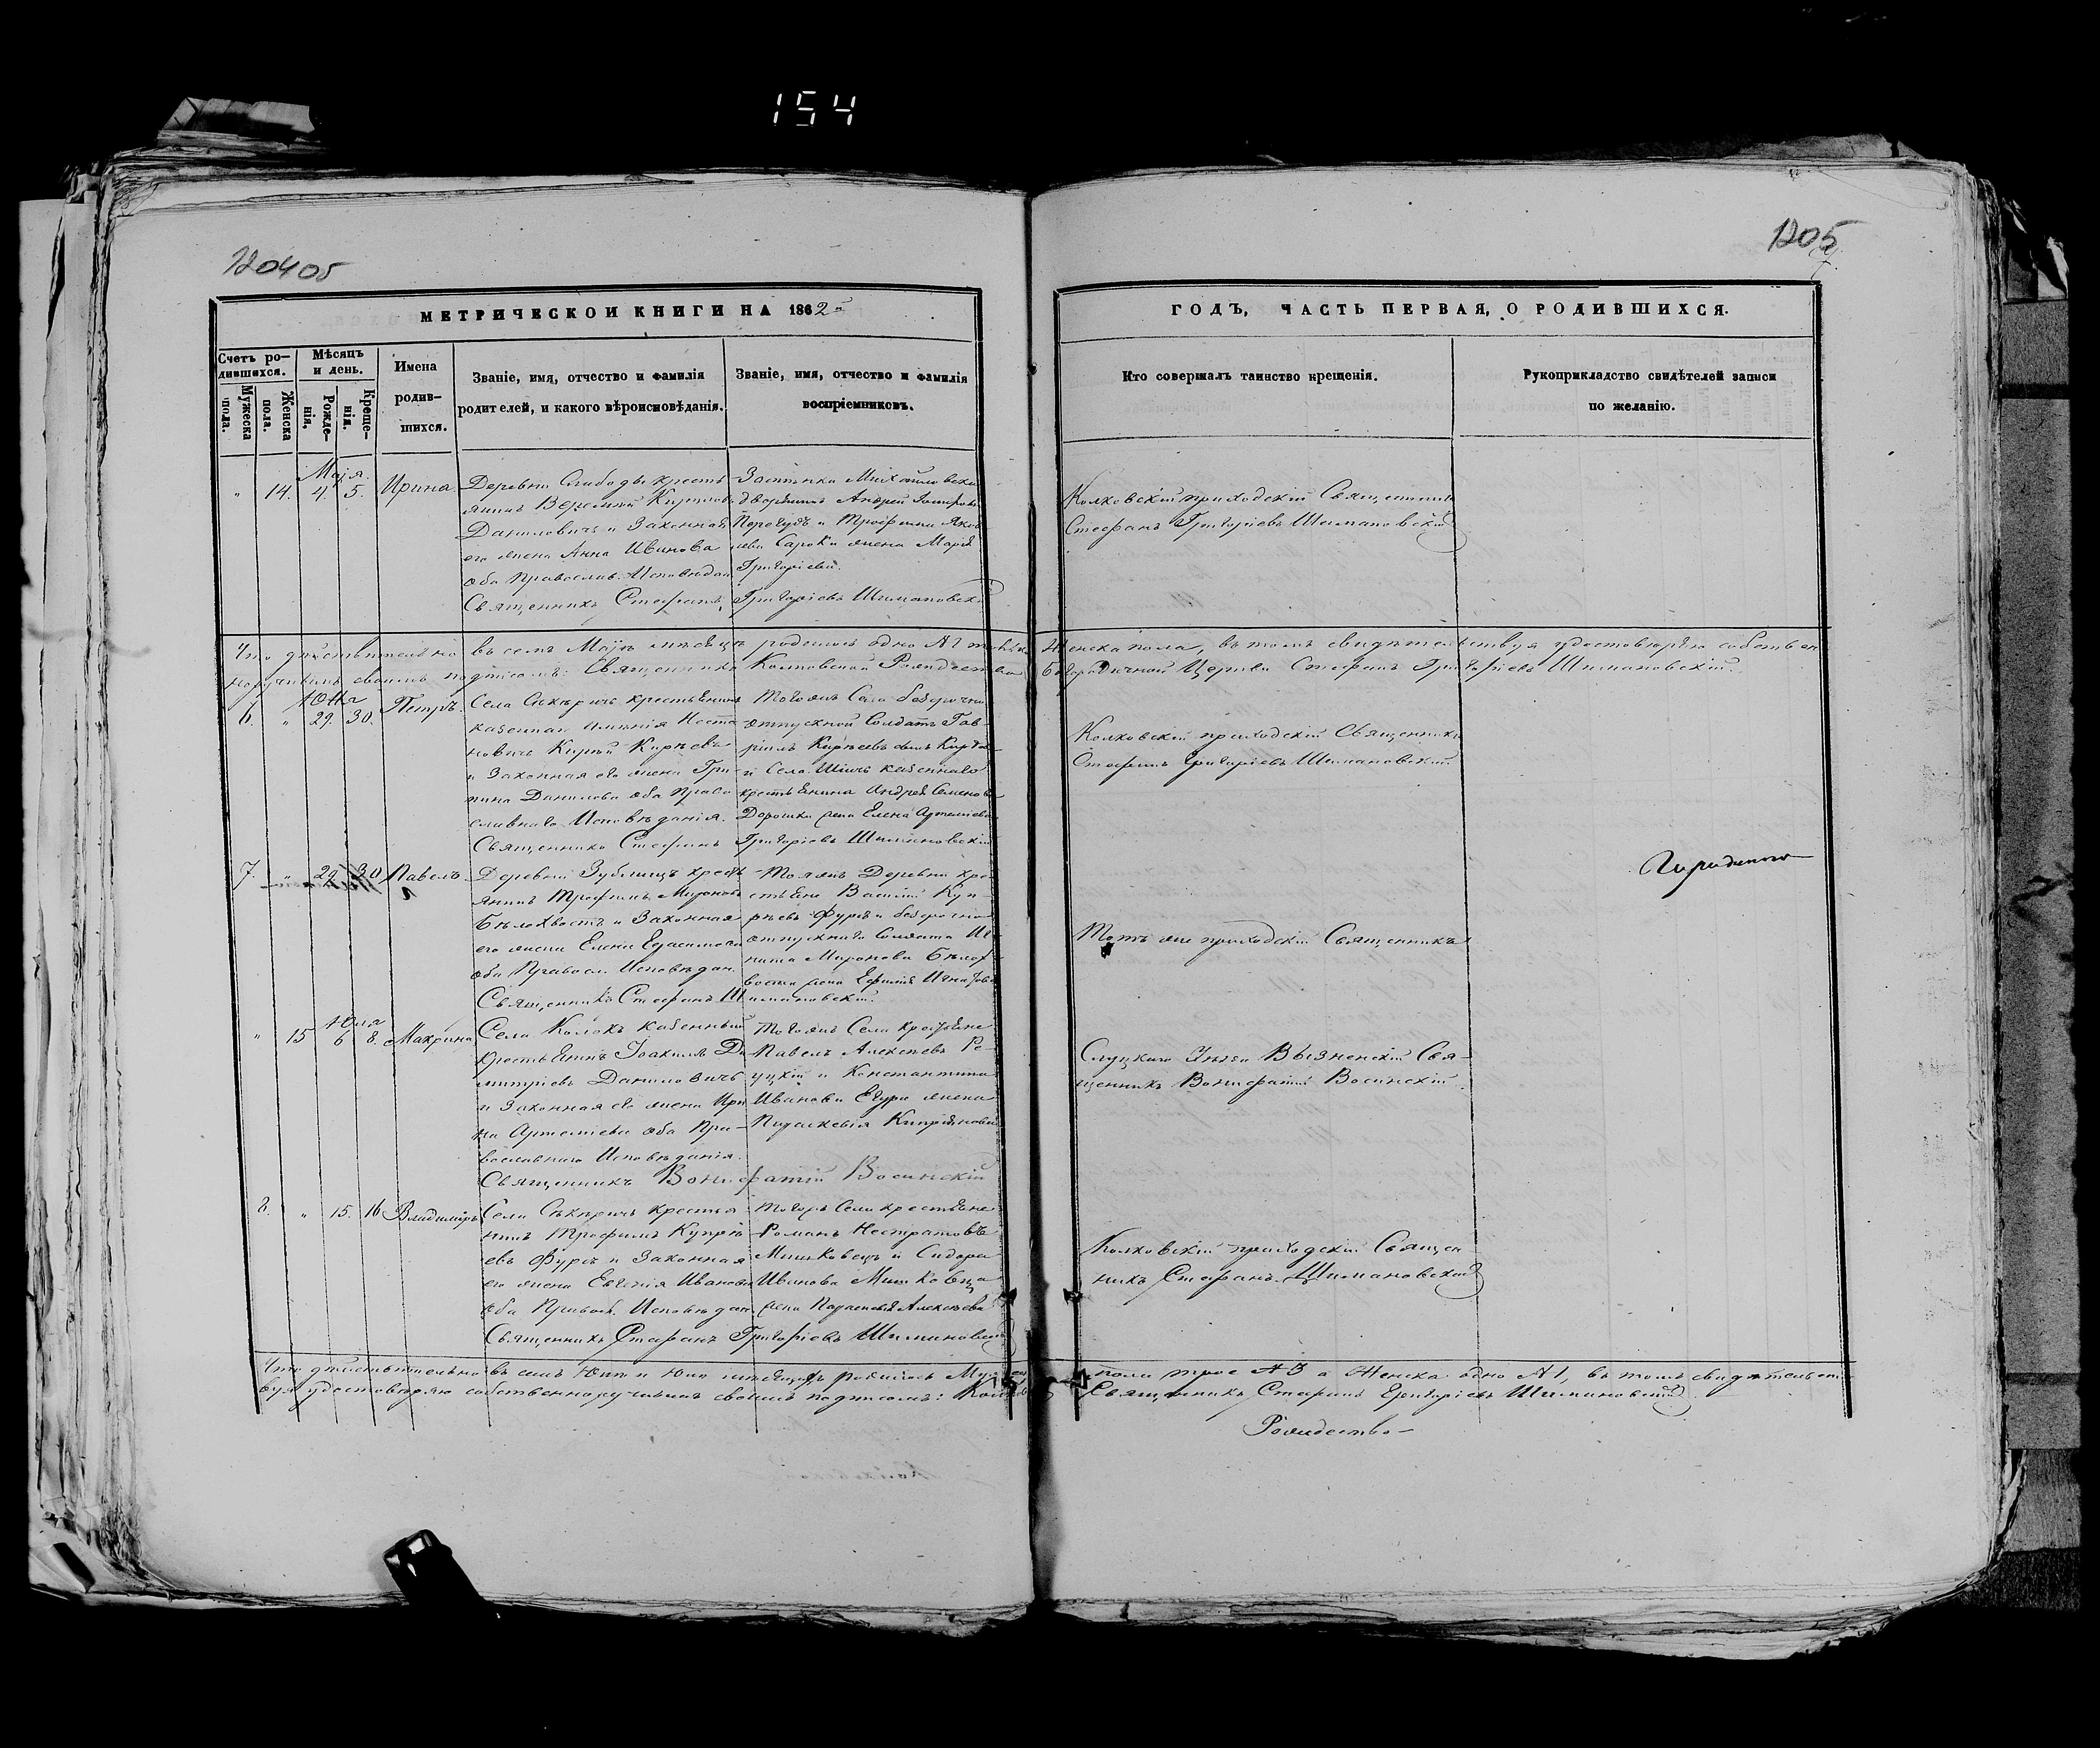 154
120405
1205
МЕТРИЧЕСКОЙ КНИГИ НА 1862й
ГОДЪ, ЧАСТЬ ПЕРВАЯ, О РОДИВШИХСЯ.
Счетъ ро-
дившихся.
Мужеска
пола.
Женска
пола.
Мѣсяцъ
и день.
Рожде-
нія.
Креще-
нія.
Имена
родив-
шихся.
Званіе, имя, отчество и фамилія
родителей, и какого вѣроисповѣданія.
Званіе, имя, отчество и фамилія
воспріемниковъ.
Кто совершалъ таинство крещенія.
Рукоприкладство свидѣтелей записи
по желанію.
Маія
" 14. 4. 5. Ирина.
Деревни Слободы кресть-
янинъ Веремей Кирилловъ
Даниловичъ и Законная
его жена Анна Иванова
оба Православ. Исповѣдан.
Священникъ Стефанъ Григоріевъ Шимановскій
дворянинъ Андрей
и Трофима Яков
лева Сароки жена Марія
Григоріева.
Колковскій приходскій Священникъ
Стефанъ Григоріевъ Шимановскій
Что дѣйствительно въ семъ Маіѣ мѣсяцѣ родилось одно №1 Женска пола, въ томъ свидѣтельствуя удостовѣряю собствен
норучнымъ своимъ подписомъ: Священникъ Колковской Рождество Богородичной Церкви Стефанъ Григоріевъ Шимановскій.
Юня
6. " 29. 30. Петръ.
Села крестьянинъ
казеннаго имѣнія Неста
новичъ Кирѣевъ
и Законная его жена Гри-
пина Данилова оба Право
славнаго Исповѣданія.
Священникъ Стефанъ Григоріевъ Шимановскій
Тогожъ Села безсрочно
отпускной Солдатъ Гав-
ріилъ Кирѣевъ сынъ
и Села казеннаго
крестьянина Андрея Семенова
Дорошки жена Елена Артеміева
Колковскій приходскій Священникъ
Стефанъ Григоріевъ Шимановскій
7. " 29 30 Павелъ.
Деревни Зублищъ кресть
янинъ Трофимъ Мироновъ
Бѣлохвостъ и Законная
его жена Елена Герасимова
оба Правосл. Исповѣдан.
Священникъ Стефанъ Шимановскій.
Тояжъ Деревни кре
стьяне Василій Куп-
рѣевъ Фурсъ и безсрочно
отпускнаго Солдата Иг
ната Миронова Бѣлох
воста жена Ефимія
Тотъ же приходскій Священникъ
Юля
" 15 6 8. Макрина
Села Колокъ казенный
крестьянинъ Іоакимъ Ди
митріевъ Даниловичъ
и Законная его жена Ири
на Артеміева оба Пра-
вославнаго Исповѣданія.
Священникъ Вонифатій Восинскій
Тогожъ Села крестьяне
Павелъ Алексѣевъ Ре-
уцкій и Константина
Иванова жена
Параскевія Кипріянова
Слуцкаго Уѣзда Вызненскій Свя-
щенникъ Вонифатій Восинскій
8. " 15. 16 Владиміръ
Села крестья
нинъ Трофимъ Купрѣ
евъ Фурсъ и Законная
его жена Евгенія Иванова
оба Правосл. Исповѣдан.
Священникъ Стефанъ Григоріевъ Шимановскій
Тогожъ Села крестьяне
Романъ
Мишковецъ и Сидора
Иванова Мишковца
жена Параскевія Алексѣева
Колковскій приходскій Священ
никъ Стефанъ Шимановскій
Что дѣйствительно въ семъ Юнѣ и Юлѣ мѣсяцахъ родилось Мужеска пола трое №3 а Женска одно №1, въ томъ свидѣтельст
вуя удостовѣряю собственноручнымъ своимъ подписомъ: Священникъ Стефанъ Григоріевъ Шимановскій
Рождество-